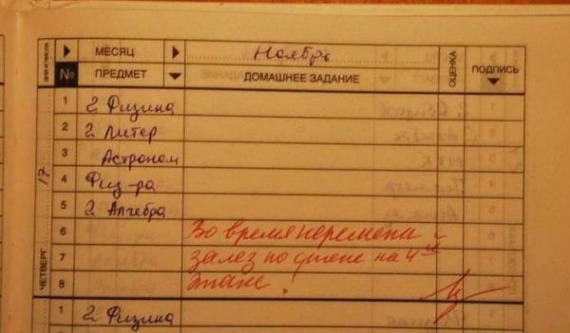 МЕСЯЦ Ноябрь ОЦЕНКА ПОДПИСЬ
№ ПРЕДМЕТ ДОМАШНЕЕ ЗАДАНИЕ
ЧЕТВЕРГ 17
1 2. Физика
2 2. Литер
3 Астроном
4 Физ-ра
5 2. Алгебра
6 Во время перемены
7 залез по стене на 4ый
8 этаж!
1 2. Физика